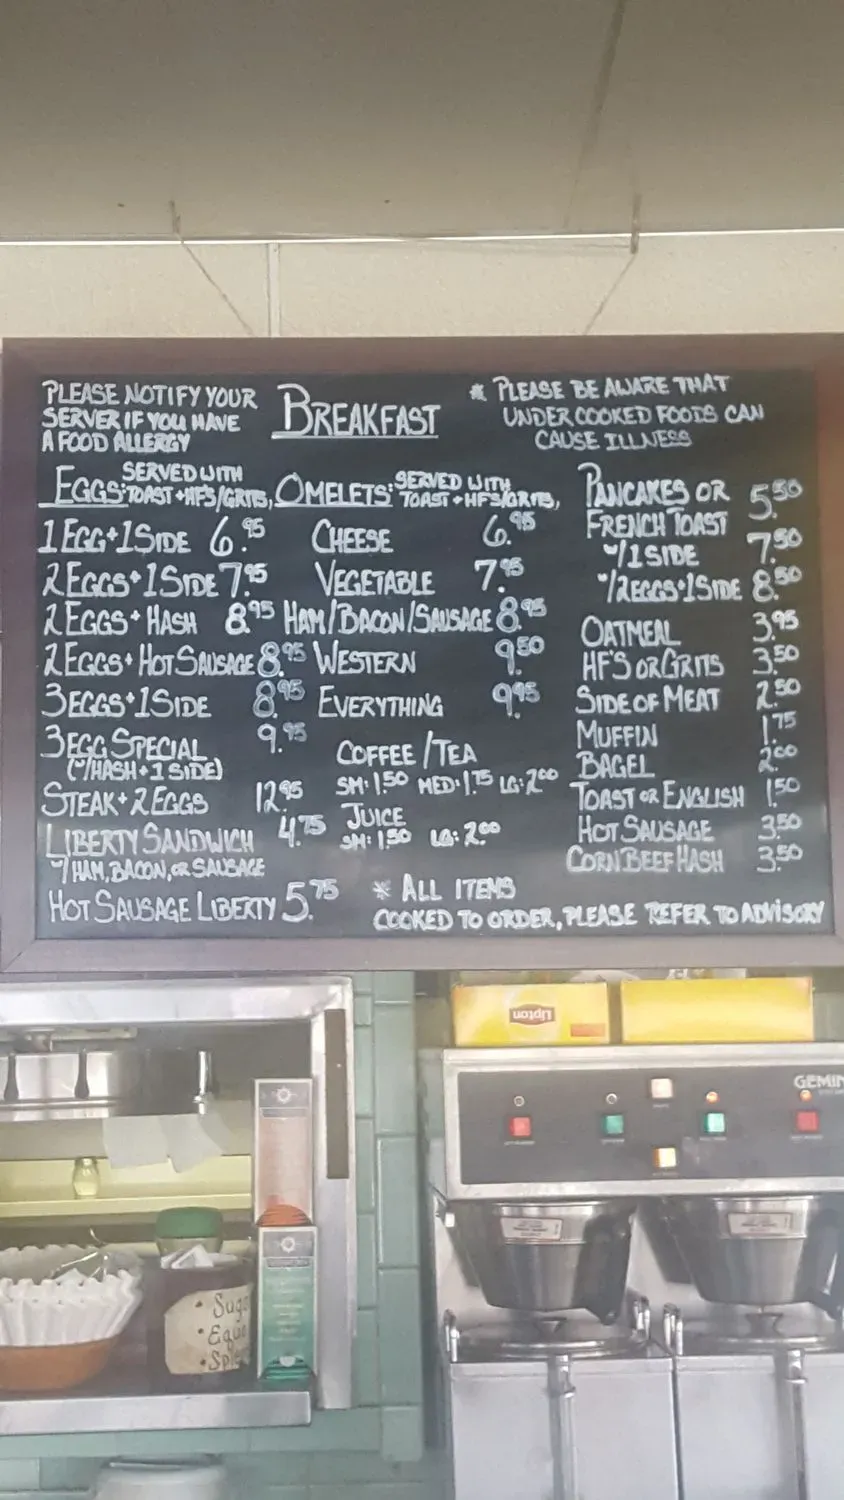 PLEASE NOTIFY YOUR
SERVER IF YOU HAVE
A FOOD ALLERGY
BREAKFAST
* PLEASE BE AWARE THAT
UNDERCOOKED FOODS CAN
CAUSE ILLNESS
EGGS: SERVED WITH
TOAST + HF'S/GRITS,
1 EGG + 1 SIDE 6.95
2 EGGS + 1 SIDE 7.95
2 EGGS + HASH 8.95
2 EGGS + HOT SAUSAGE 8.95
3 EGGS + 1 SIDE 8.95
3 EGG SPECIAL 9.95
(W/HASH + 1 SIDE)
STEAK + 2 EGGS 12.95
LIBERTY SANDWICH 4.75
W/HAM, BACON, OR SAUSAGE
HOT SAUSAGE LIBERTY 5.75
OMELETS: SERVED WITH
TOAST + HF'S/GRITS,
CHEESE 6.95
VEGETABLE 7.95
HAM/BACON/SAUSAGE 8.95
WESTERN 9.50
EVERYTHING 9.95
COFFEE/TEA
SM: 1.50 MED: 1.75 LG: 2.00
JUICE
SM: 1.50 LG: 2.00
PANCAKES OR
FRENCH TOAST 5.50
W/1 SIDE 7.50
W/2 EGGS + 1 SIDE 8.50
OATMEAL 3.95
HF'S OR GRITS 3.50
SIDE OF MEAT 2.50
MUFFIN 1.75
BAGEL 2.00
TOAST OR ENGLISH 1.50
HOT SAUSAGE 3.50
CORN BEEF HASH 3.50
* ALL ITEMS
COOKED TO ORDER, PLEASE REFER TO ADVISORY
Lipton
GEMIN
• Suga
• Equa
• Sple